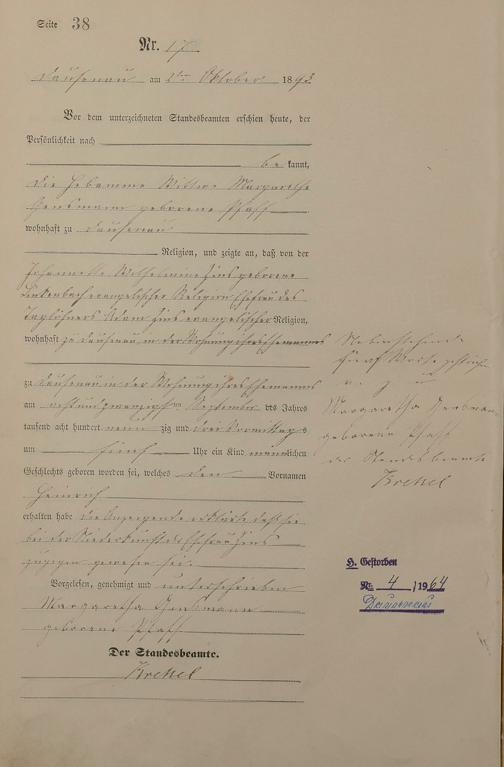 Seite 38
Nr. 17
Dausenau am 2ten Oktober 1893
Vor dem unterzeichneten Standesbeamten erschien heute, der
Persönlichkeit nach
be kannt,
die Hebamme Wittwe Margaretha
geborene Pfaff
wohnhaft zu Dausenau
Religion, und zeigte an, daß von der
Johannette Wilhelmine Zins geborene
Linkenbach evangelischer Religion Ehefrau des
Taglöhners Adam Zins evangelischer Religion,
wohnhaft zu Dausenau in der Wohnung ihres Ehemannes
zu Dausenau in der Wohnung ihres Ehemannes
am achtundzwanzigsten September des Jahres
tausend acht hundert neunzig und drei Vormittags
um fünf Uhr ein Kind männlichen
Geschlechts geboren worden sei, welches den Vornamen
Heinrich
erhalten habe die Anzeigende erklärte daß sie
bei der Niederkunft der Ehefrau Zins
zugegen gewesen sei.
Vorgelesen, genehmigt und unterschrieben
Margaretha
geborene Pfaff
Der Standesbeamte.
Krekel
Nebenstehende
fünf Worte gestrichen
Margaretha
geborene Pfaff
der Standesbeamte
Krekel
H. Gestorben
Nr. 4 /1964